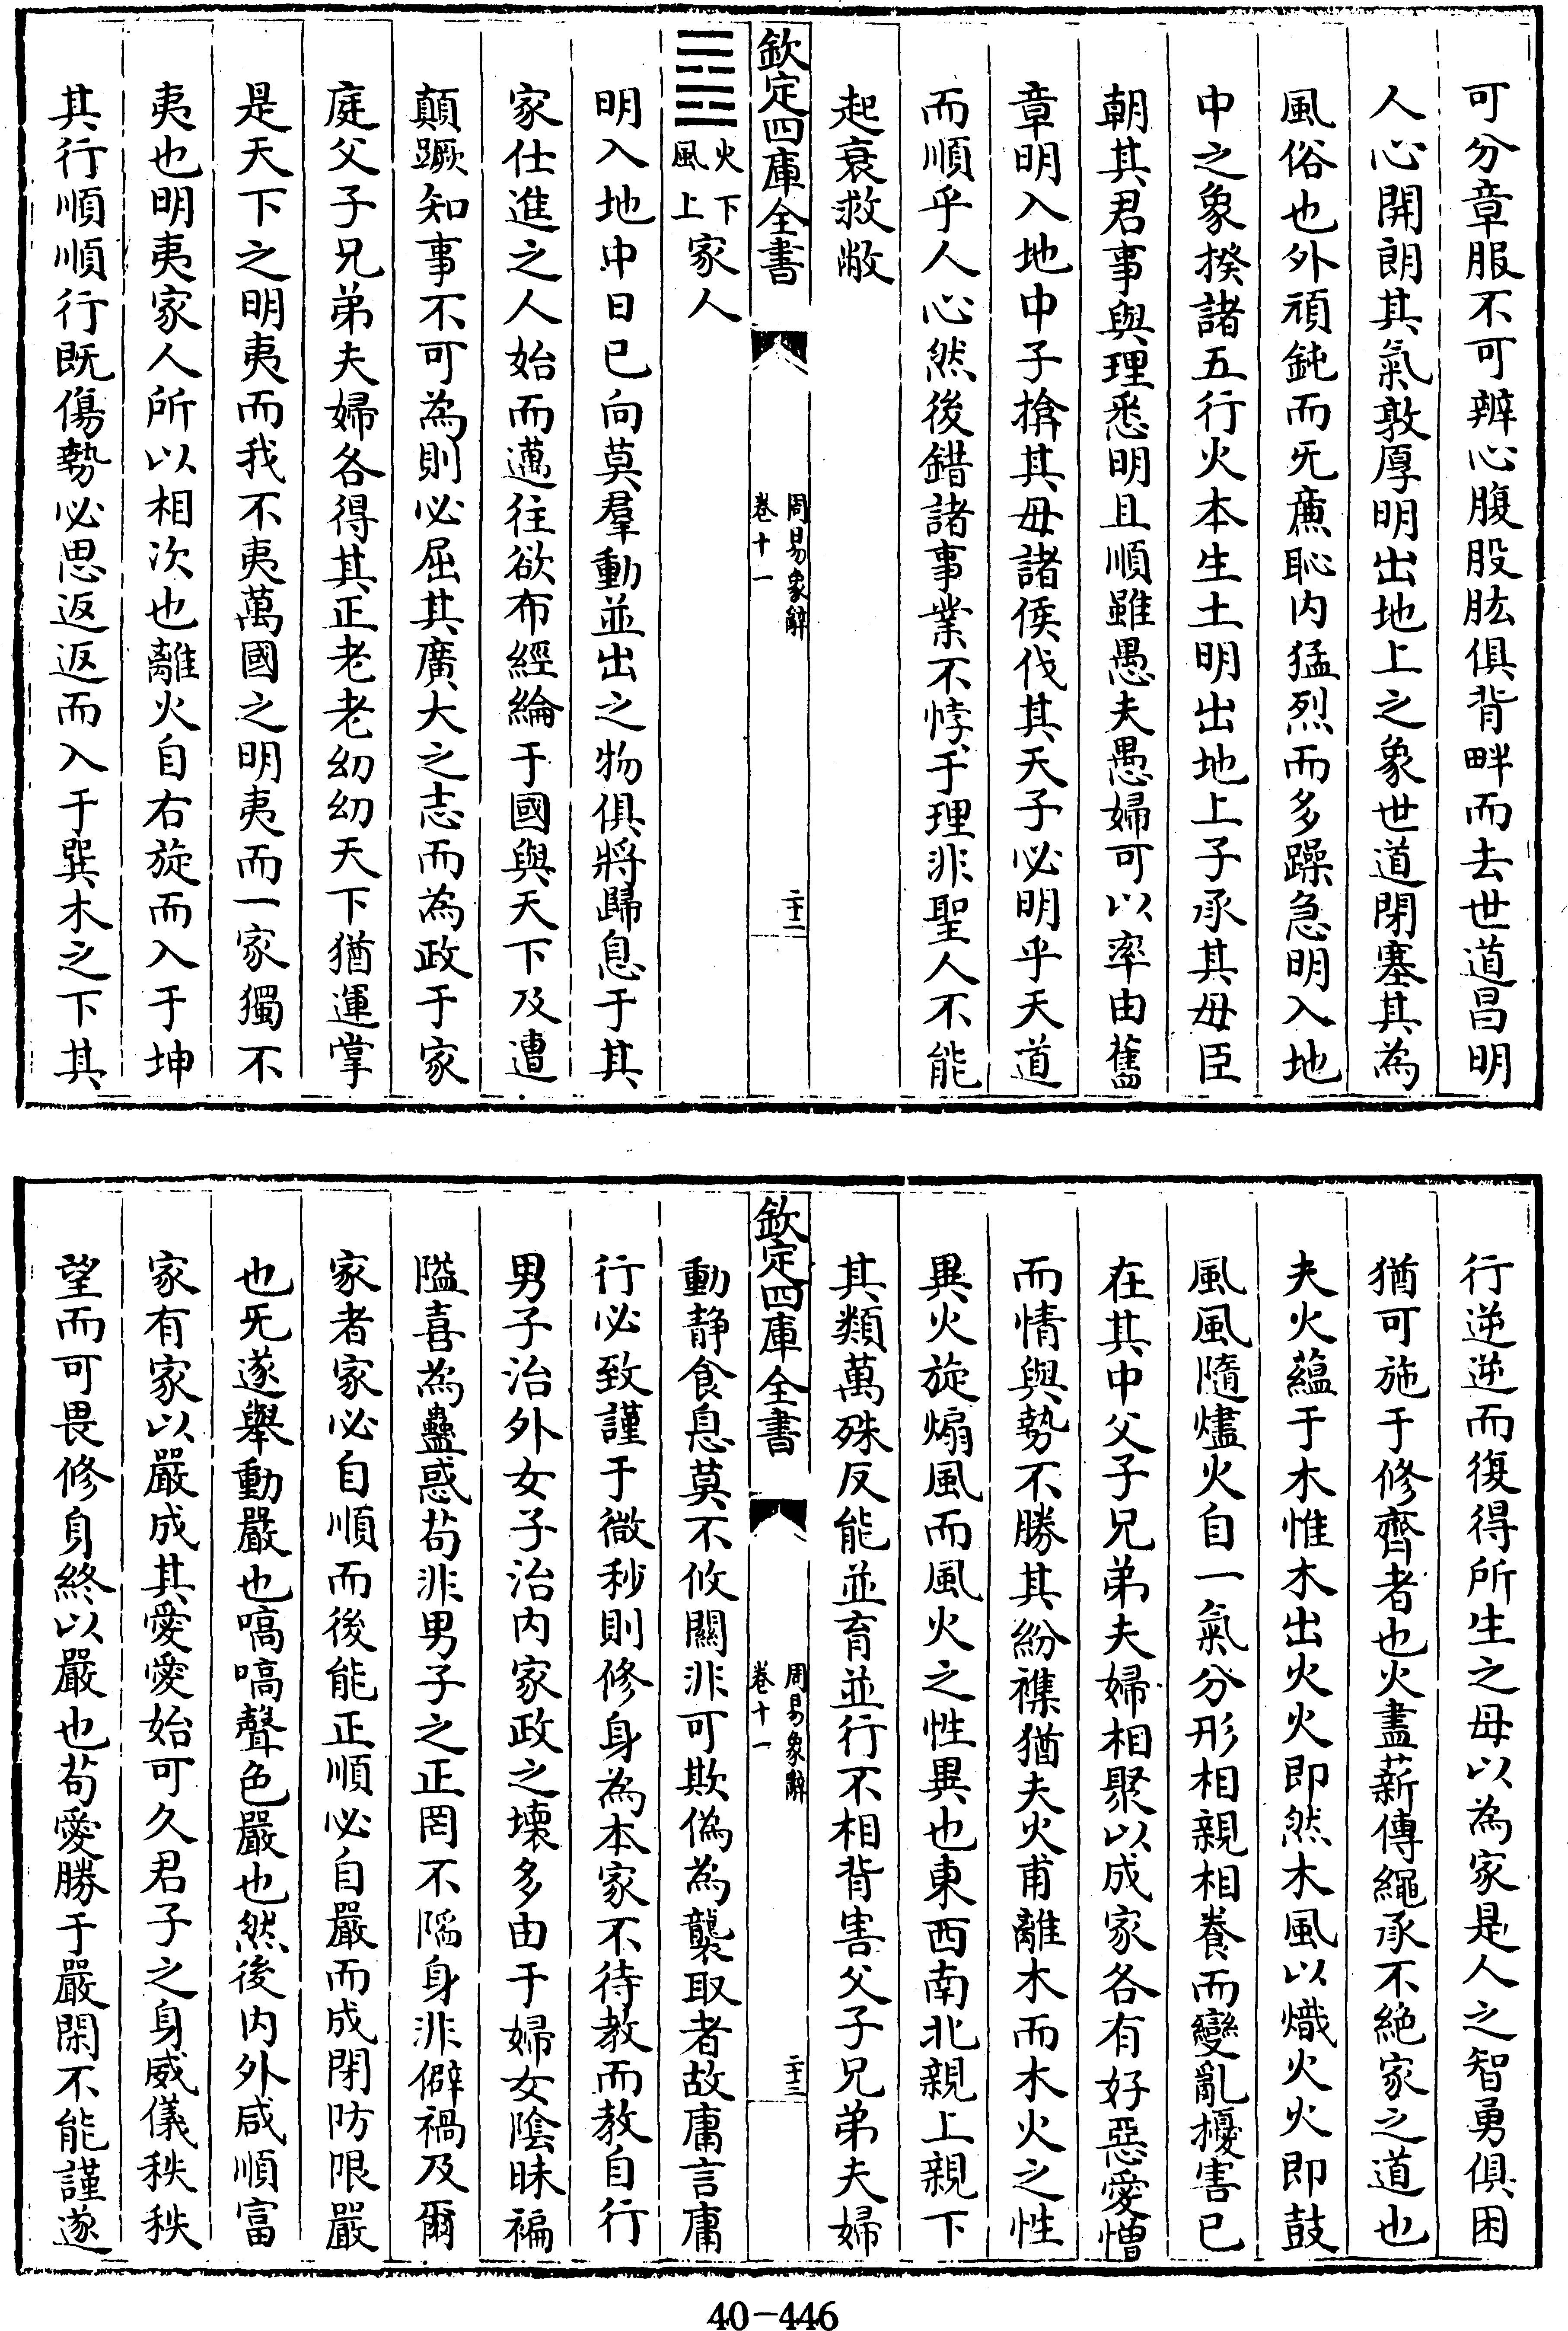 可分章服不可辨心腹股肱俱背畔而去世道昌明
人心開朗其氣敦厚明出地上之象世道閉塞其為
風俗也外頑鈍而旡亷恥内猛烈而多躁急明入地
中之象揆諸五行火本生土明出地上子承其母臣
朝其君事與理悉明且順雖愚夫愚婦可以率由舊
章明入地中子揜其母諸侯伐其天子必明乎天道
而順乎人心然後錯諸事業不悖乎理非聖人不能
起衰救敝
欽定四庫全書
周易象辭
卷十一
二十二
䷤
火下
風上
家人
明入地中日已向莫羣動並出之物俱將歸息于其
家仕進之人始而邁往欲布經綸于國與天下及遭
顛蹶知事不可為則必屈其廣大之志而為政于家
庭父子兄弟夫婦各得其正老老幼幼天下猶運掌
是天下之明夷而我不夷萬國之明夷而一家獨不
夷也明夷家人所以相次也離火自右旋而入于坤
其行順順行既傷勢必思返返而入于巽木之下其
行逆逆而復得所生之母以為家是人之智勇俱困
猶可施于修齊者也火盡薪傳繩承不絶家之道也
夫火蘊于木惟木出火火即然木風以熾火火即鼓
風風隨燼火自一氣分形相親相養而變亂擾害已
在其中父子兄弟夫婦相聚以成家各有好惡愛憎
而情與勢不勝其紛襍猶夫火甫離木而木火之性
異火旋煽風而風火之性異也東西南北親上親下
其類萬殊反能並育並行不相背害父子兄弟夫婦
欽定四庫全書
周易象辭
卷十一
二十三
動靜食息莫不攸關非可欺偽為襲取者故庸言庸
行必致謹于微秒則修身為本家不待教而教自行
男子治外女子治内家政之壊多由于婦女陰昧褊
隘喜為蠱惑茍非男子之正罔不䧟身非僻禍及爾
家者家必自順而後能正順必自嚴而成閉防限嚴
也旡遂舉動嚴也嗃嗃聲色嚴也然後内外咸順富
家有家以嚴成其愛愛始可久君子之身威儀秩秩
望而可畏修身終以嚴也茍愛勝于嚴閑不能謹遂
40-446